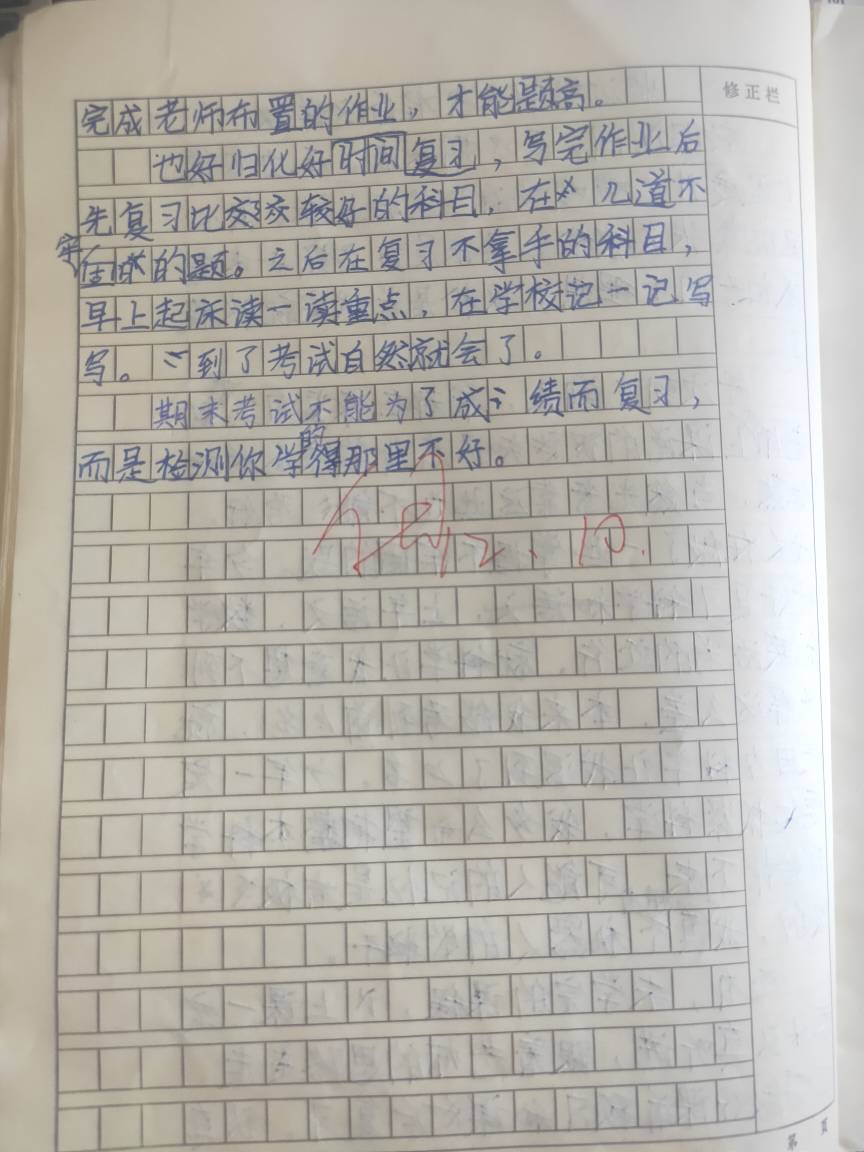 修正栏
完成老师布置的作业，才能题高。
也好归化好时间复习，写完作业后
先复习比较好的科目，在 几道不
的题。之后在复习不拿手的科目，
早上起床读一读重点，在学校记一记写
写。到了考试自然就会了。
期末考试不能为了成绩而复习，
而是检测你学的得那里不好。
12.10.
第 页